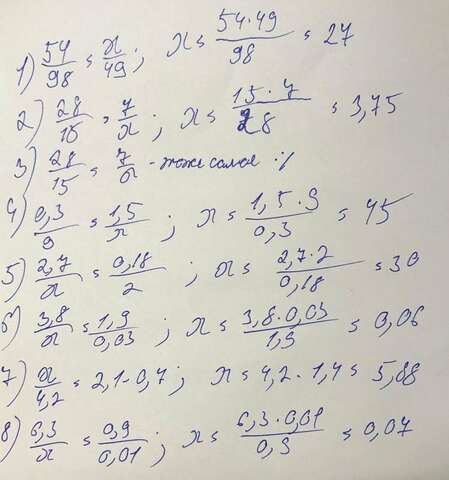 1) 54/98 = x/49 ; x = 54·49/98 = 27
2) 28/15 = 7/x ; x = 15·7/28 = 3,75
3) 28/15 = 7/x - тоже самое :/
4) 0,3/9 = 1,5/x ; x = 1,5·9/0,3 = 45
5) 2,7/x = 0,18/2 ; x = 2,7·2/0,18 = 30
6) 3,8/x = 1,9/0,03 ; x = 3,8·0,03/1,9 = 0,06
7) x/4,2 = 2,1-0,7 ; x = 4,2·1,4 = 5,88
8) 6,3/x = 0,9/0,01 ; x = 6,3·0,01/0,9 = 0,07